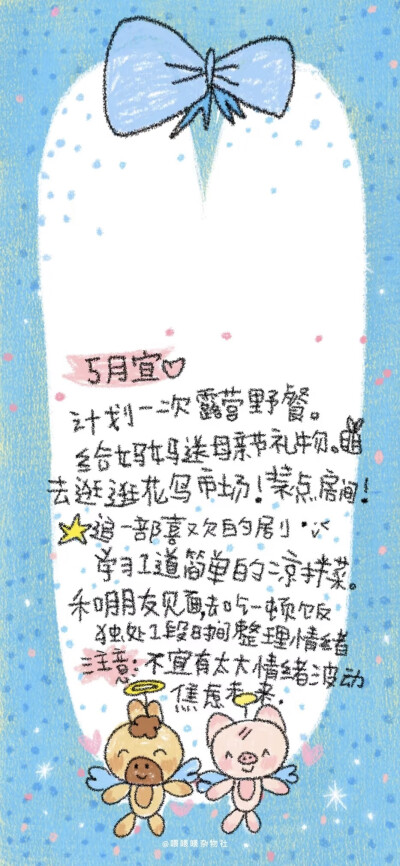 5月宜
计划一次露营野餐。
给妈妈送母亲节礼物。
去逛逛花鸟市场!装点房间!
追一部喜欢的剧
学习1道简单的凉拌菜。
和朋友见面,去吃一顿饭
独处1段时间整理情绪
注意:不宜有太大情绪波动
焦虑未来.
@眼眼睡杂物社